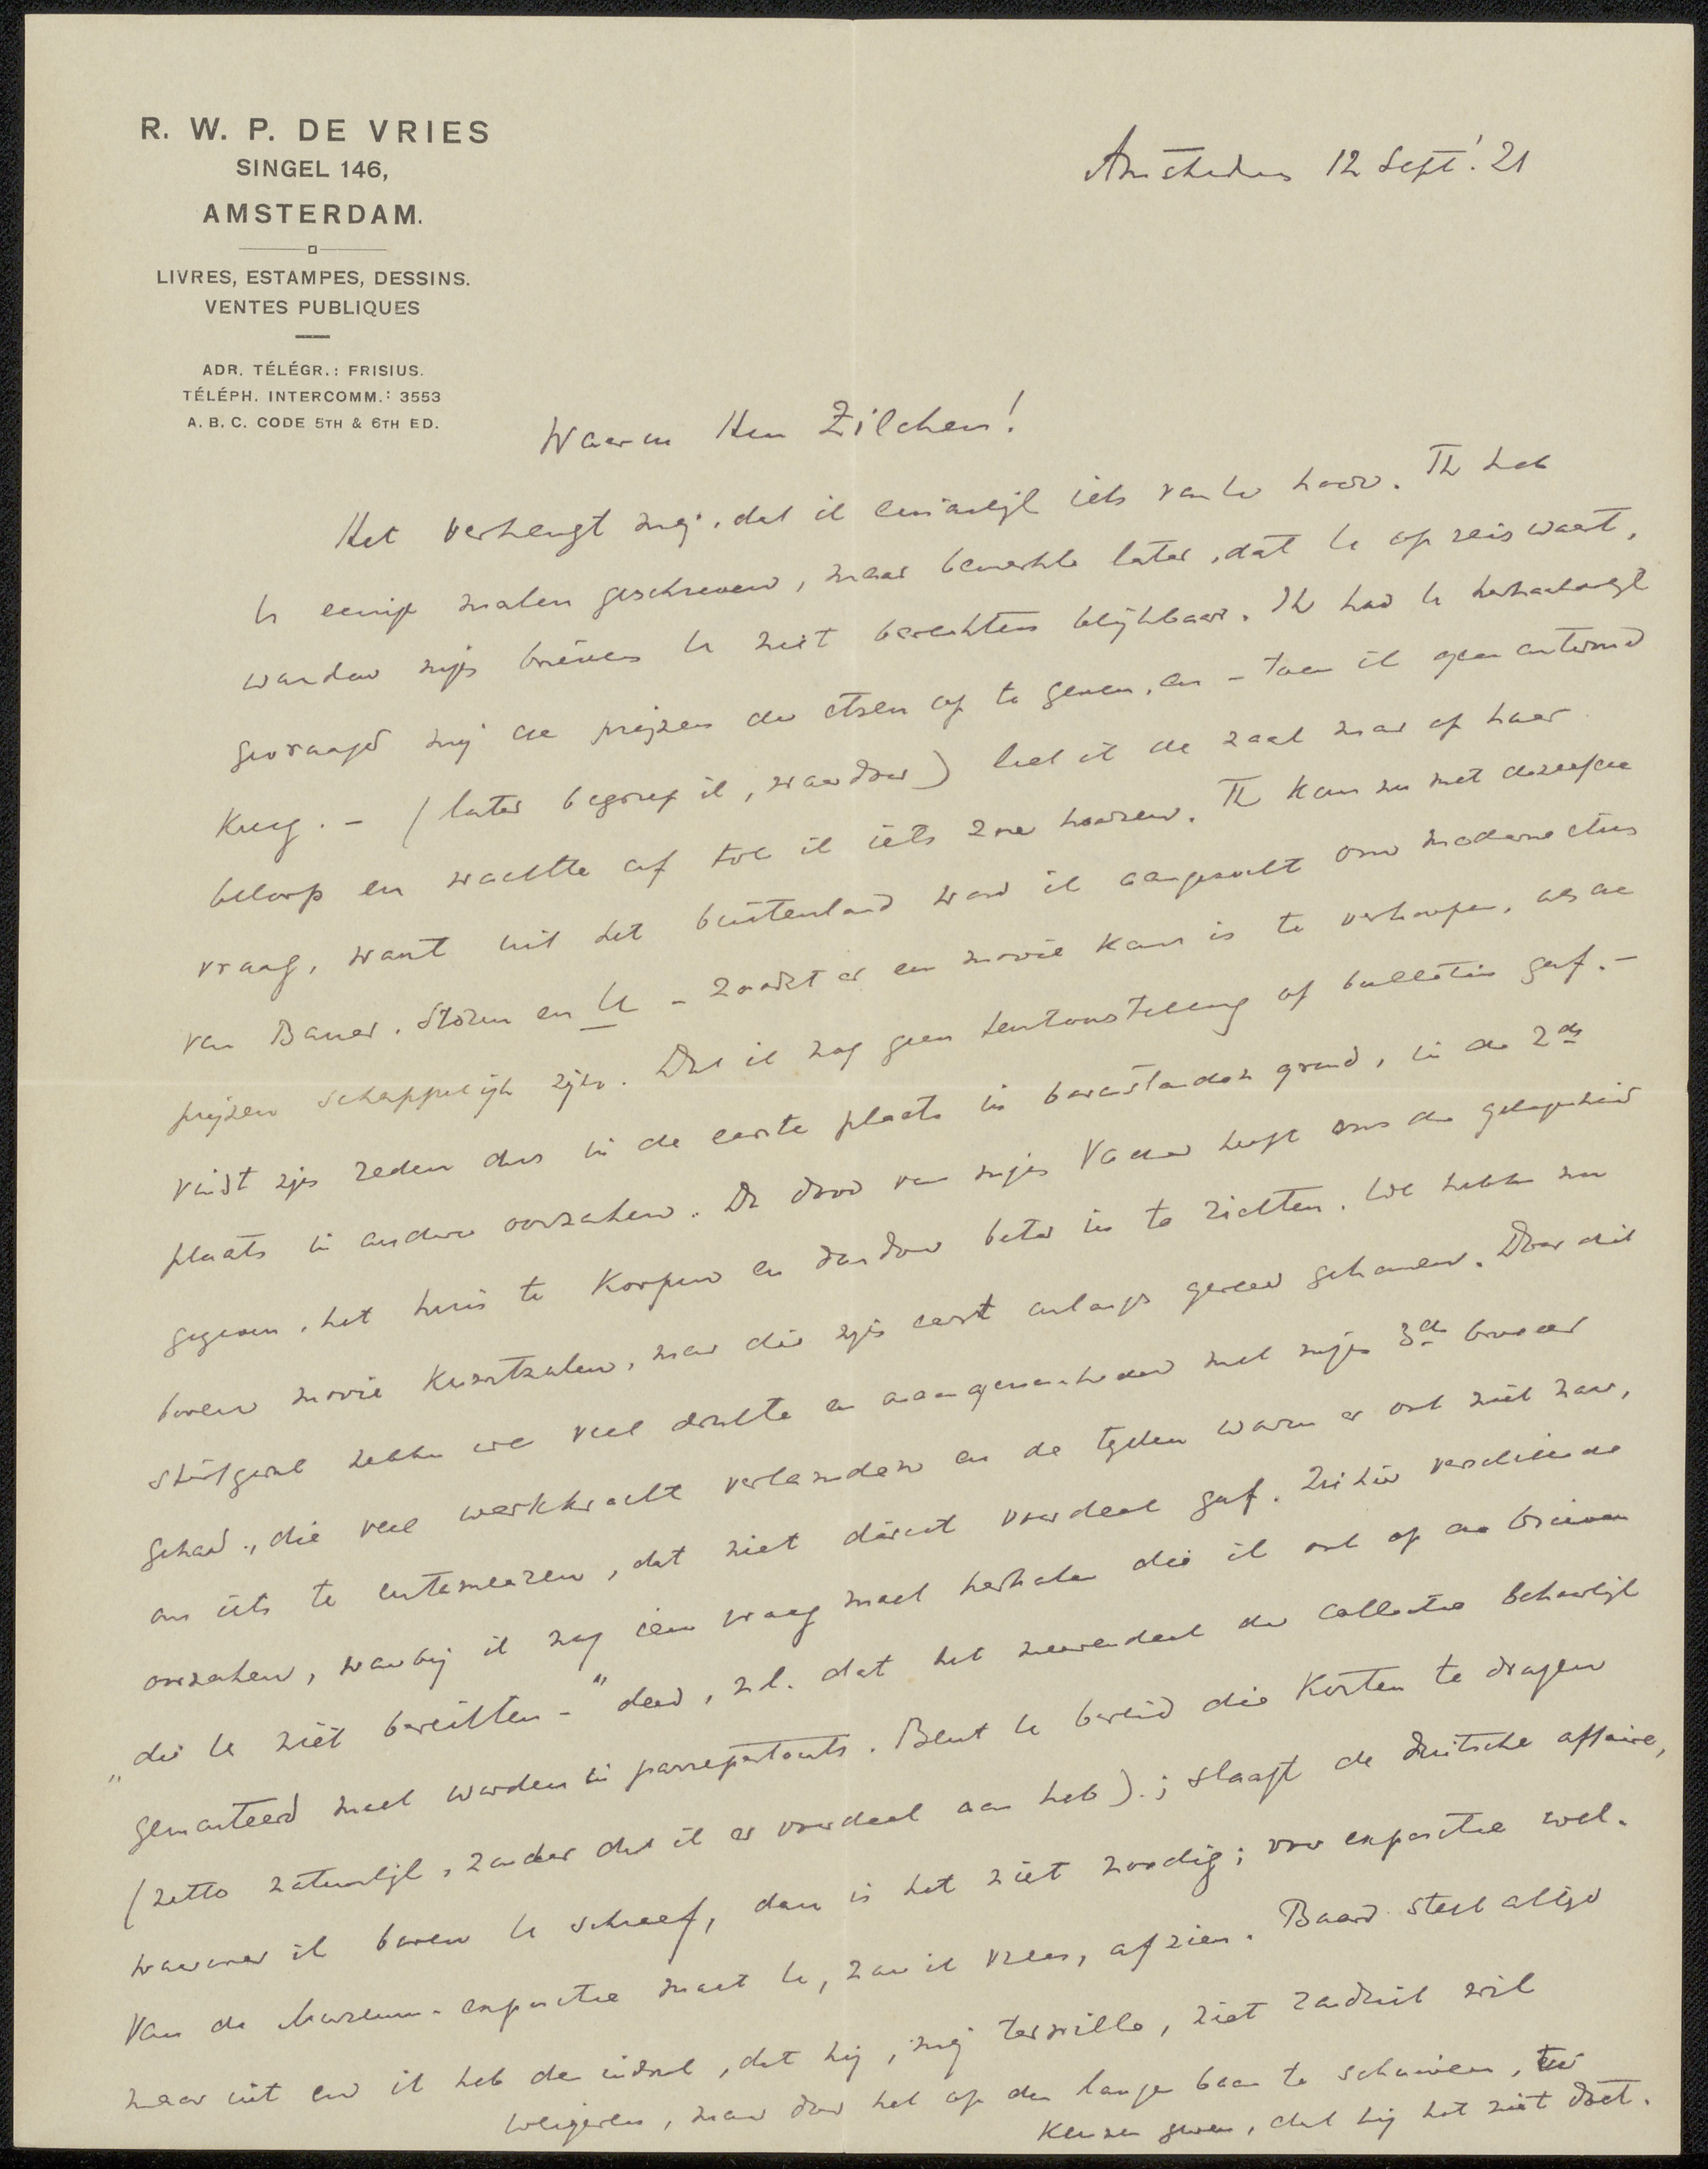 R. W. P. DE VRIES
SINGEL 146,
AMSTERDAM.
LIVRES, ESTAMPES, DESSINS.
VENTES PUBLIQUES
ADR. TÉLÉGR.: FRISIUS.
TÉLÉPH. INTERCOMM.: 3553
A. B. C. CODE 5TH & 6TH ED.
Amsterdam 12 Sept. '21
Waarde Heer Zilcken!
Het verheugt mij, dat ik eindelijk iets van U hoor. Ik heb
U eenige malen geschreven, maar bemerkte later, dat U op reis waart,
waardoor mijn brieven U niet bereikten blijkbaar. Ik had U herhaaldelijk
gevraagd mij de prijzen der etsen op te geven, en – toen ik geen antwoord
kreeg. – (later begreep ik, waardoor) liet ik de zaak maar op haar
beloop en wachtte af tot ik iets zou hooren. Ik kom nu met dezelfde
vraag, want uit het buitenland word ik aangezocht om moderne etsen
van Bauer, Storm en U – zoodat er een mooie kans is te verkoopen, als de
prijzen schappelijk zijn. Dat ik nog geen tentoonstelling of bulletin gaf. –
vindt zijn reden dus in de eerste plaats in bovenstaanden grond, in de 2de
plaats in andere oorzaken. De dood van mijn Vader heeft ons de gelegenheid
gegeven, het huis te koopen en daardoor beter in te richten. We hebben nu
boven mooie kunstzalen, maar die zijn eerst onlangs gereed gekomen. Door dit
sterfgeval hebben we veel drukte en onaangenaamheden met mijn 3de broeder
gehad, die veel werkkracht verlamden en de tijden waren er ook niet naar,
om iets te entameeren, dat niet direct voordeel gaf. Ziehier verschillende
oorzaken, waarbij ik nog één vraag moet herhalen die ik ook op de brieven
„die U niet bereikten –" deed, n.l. dat het meerendeel der collectie behoorlijk
gemonteerd moet worden in passepartouts. Bent U bereid die kosten te dragen
(netto natuurlijk, zonder dat ik er voordeel aan heb).; slaagt de Duitsche affaire,
waarover ik boven U schreef, dan is het niet noodig; voor expositie wel.
Van de Museum-expositie moet U, zou ik vreezen, afzien. Baard stelt altijd
maar uit en ik heb den indruk, dat hij, mij ter wille, niet ronduit wil
weigeren, maar door het op den lange baan te schuiven, te
kennen geven, dat hij het niet doet.